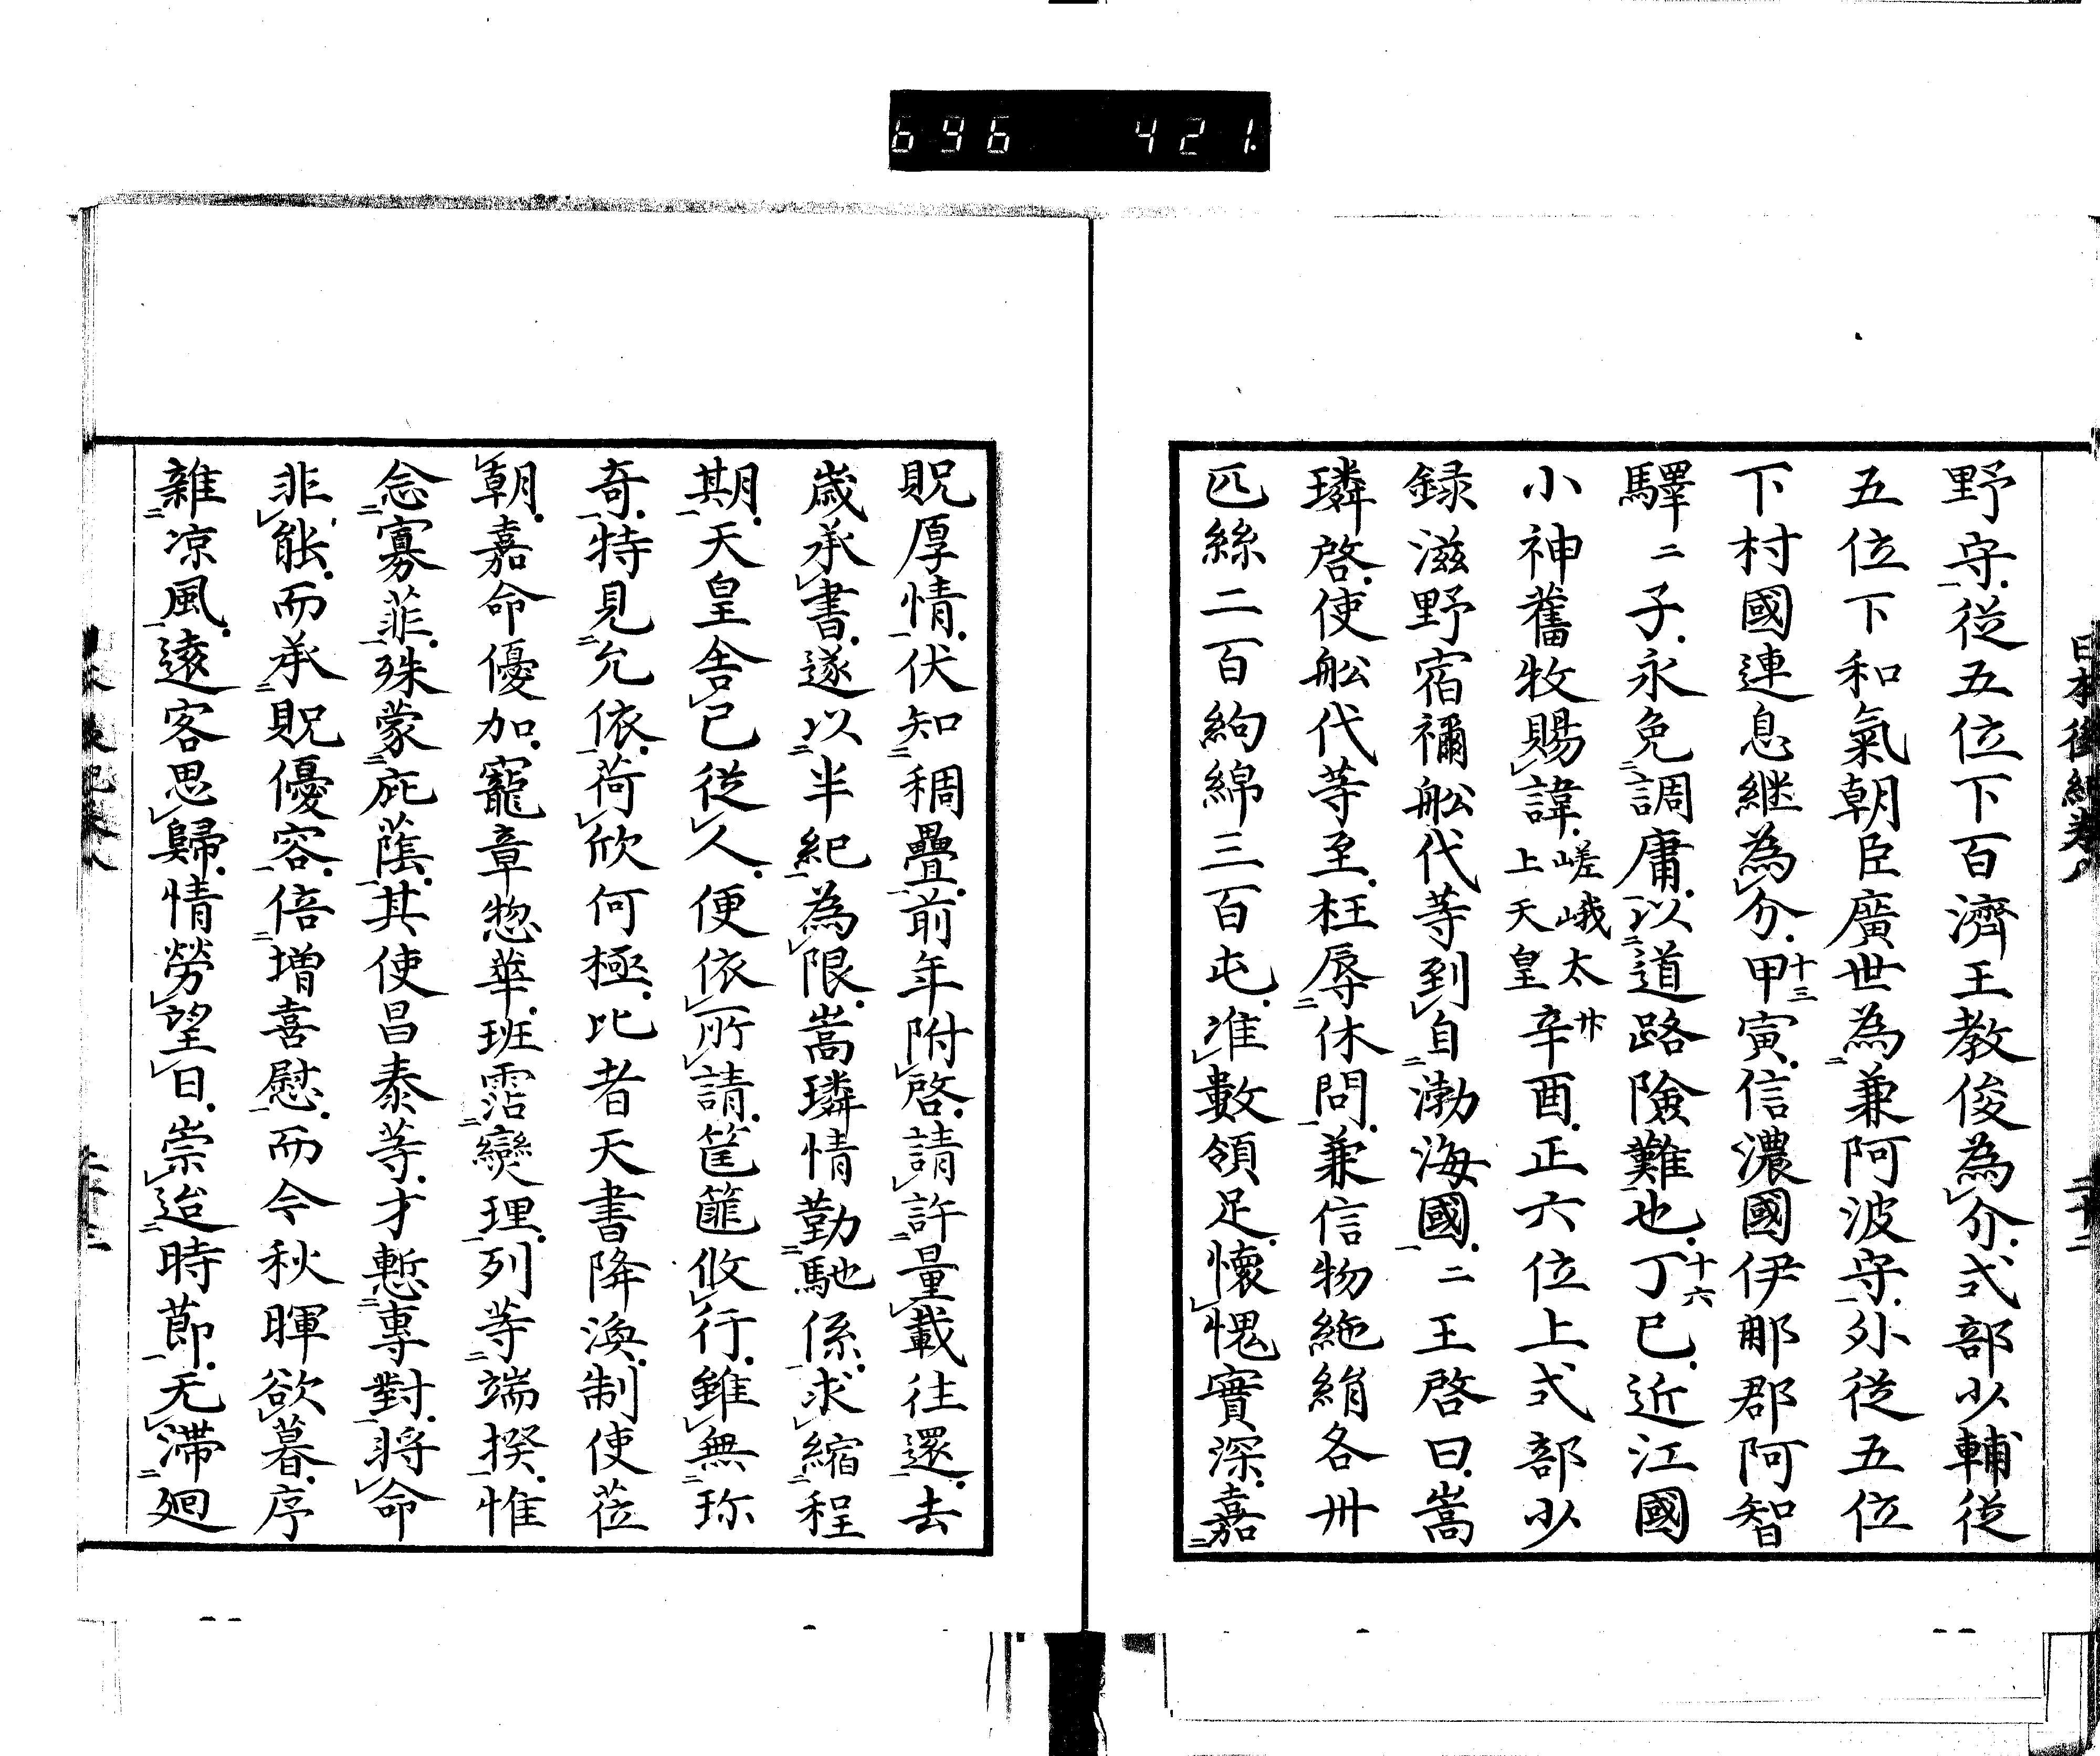 696 421.
日本後紀卷八 二十二
野守從五位下百濟王教俊為介式部少輔從
五位下和氣朝臣廣世為兼阿波守外從五位
下村國連息継為介甲十三寅信濃國伊那郡阿智
驛二子永免調庸以道路險難也丁十六巳近江國
小神舊牧賜諱嵯峨太上天皇辛廾酉正六位上式部少
録滋野宿禰舩代等到自渤海國二王啓曰嵩
璘啓使舩代等至枉辱休問兼信物絁絹各卅
匹絲二百絇綿三百屯准數領足懷愧實深嘉
貺厚情伏知稠疊前年附啓請許量載往還去
歲承書遂以半紀為限嵩璘情勤馳係求縮程
期天皇舎己從人便依所請筐篚攸行雖無珎
奇特見允依荷欣何極比者天書降渙制使莅
朝嘉命優加寵章惣華班霑爕理列等端揆惟
念寡菲殊蒙庇蔭其使昌泰等才慙專對將命
非能而承貺優容倍増喜慰而今秋暉欲暮序
雜凉風遠客思歸情勞望日崇迨時莭无滞廻